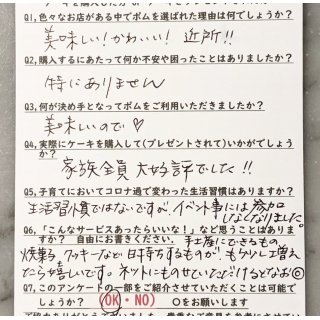 Q1,色々なお店がある中でポムを選ばれた理由は何でしょうか？
美味しい！かわいい！ 近所!!
Q2,購入するにあたって何か不安や困ったことはありましたか？
特にありません
Q3,何が決め手となってポムをご利用いただきましたか？
美味しいので♡
Q4,実際にケーキを購入して(プレゼントされて)いかがでしょうか？
家族全員 大好評でした!!
Q5,子育てにおいてコロナ過で変わった生活習慣はありますか？
生活習慣ではないですが、イベント事には参加
しなくなりました。
Q6,「こんなサービスあったらいいな！」など思うことはありますか？ 自由にお書きください。
手土産にできるもの
焼菓子、クッキーなど日持ちするものが、もう少し増え
たら嬉しいです。ネットにものせていただけるとなお◎
Q7,このアンケートの一部をご紹介させていただくことは可能でしょうか？ (OK・NO) 〇をお願いします